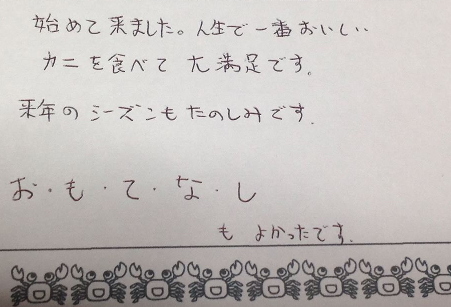 始めて来ました。人生で一番おいしい
カニを食べて大満足です。
来年のシーズンもたのしみです.
お・も・て・な・し
も よかったです.